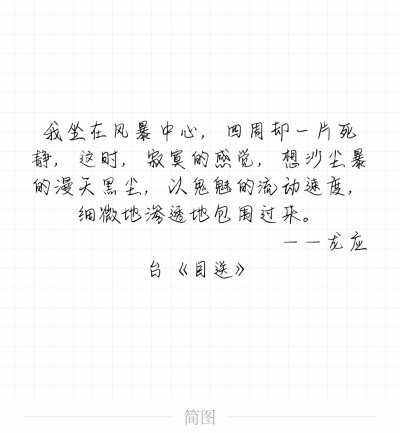 我坐在风暴中心，四周却一片死
静，这时，寂寞的感觉，想沙尘暴
的漫天黑尘，以鬼魅的流动速度，
细微地渗透地包围过来。
——龙应
台《目送》
简图